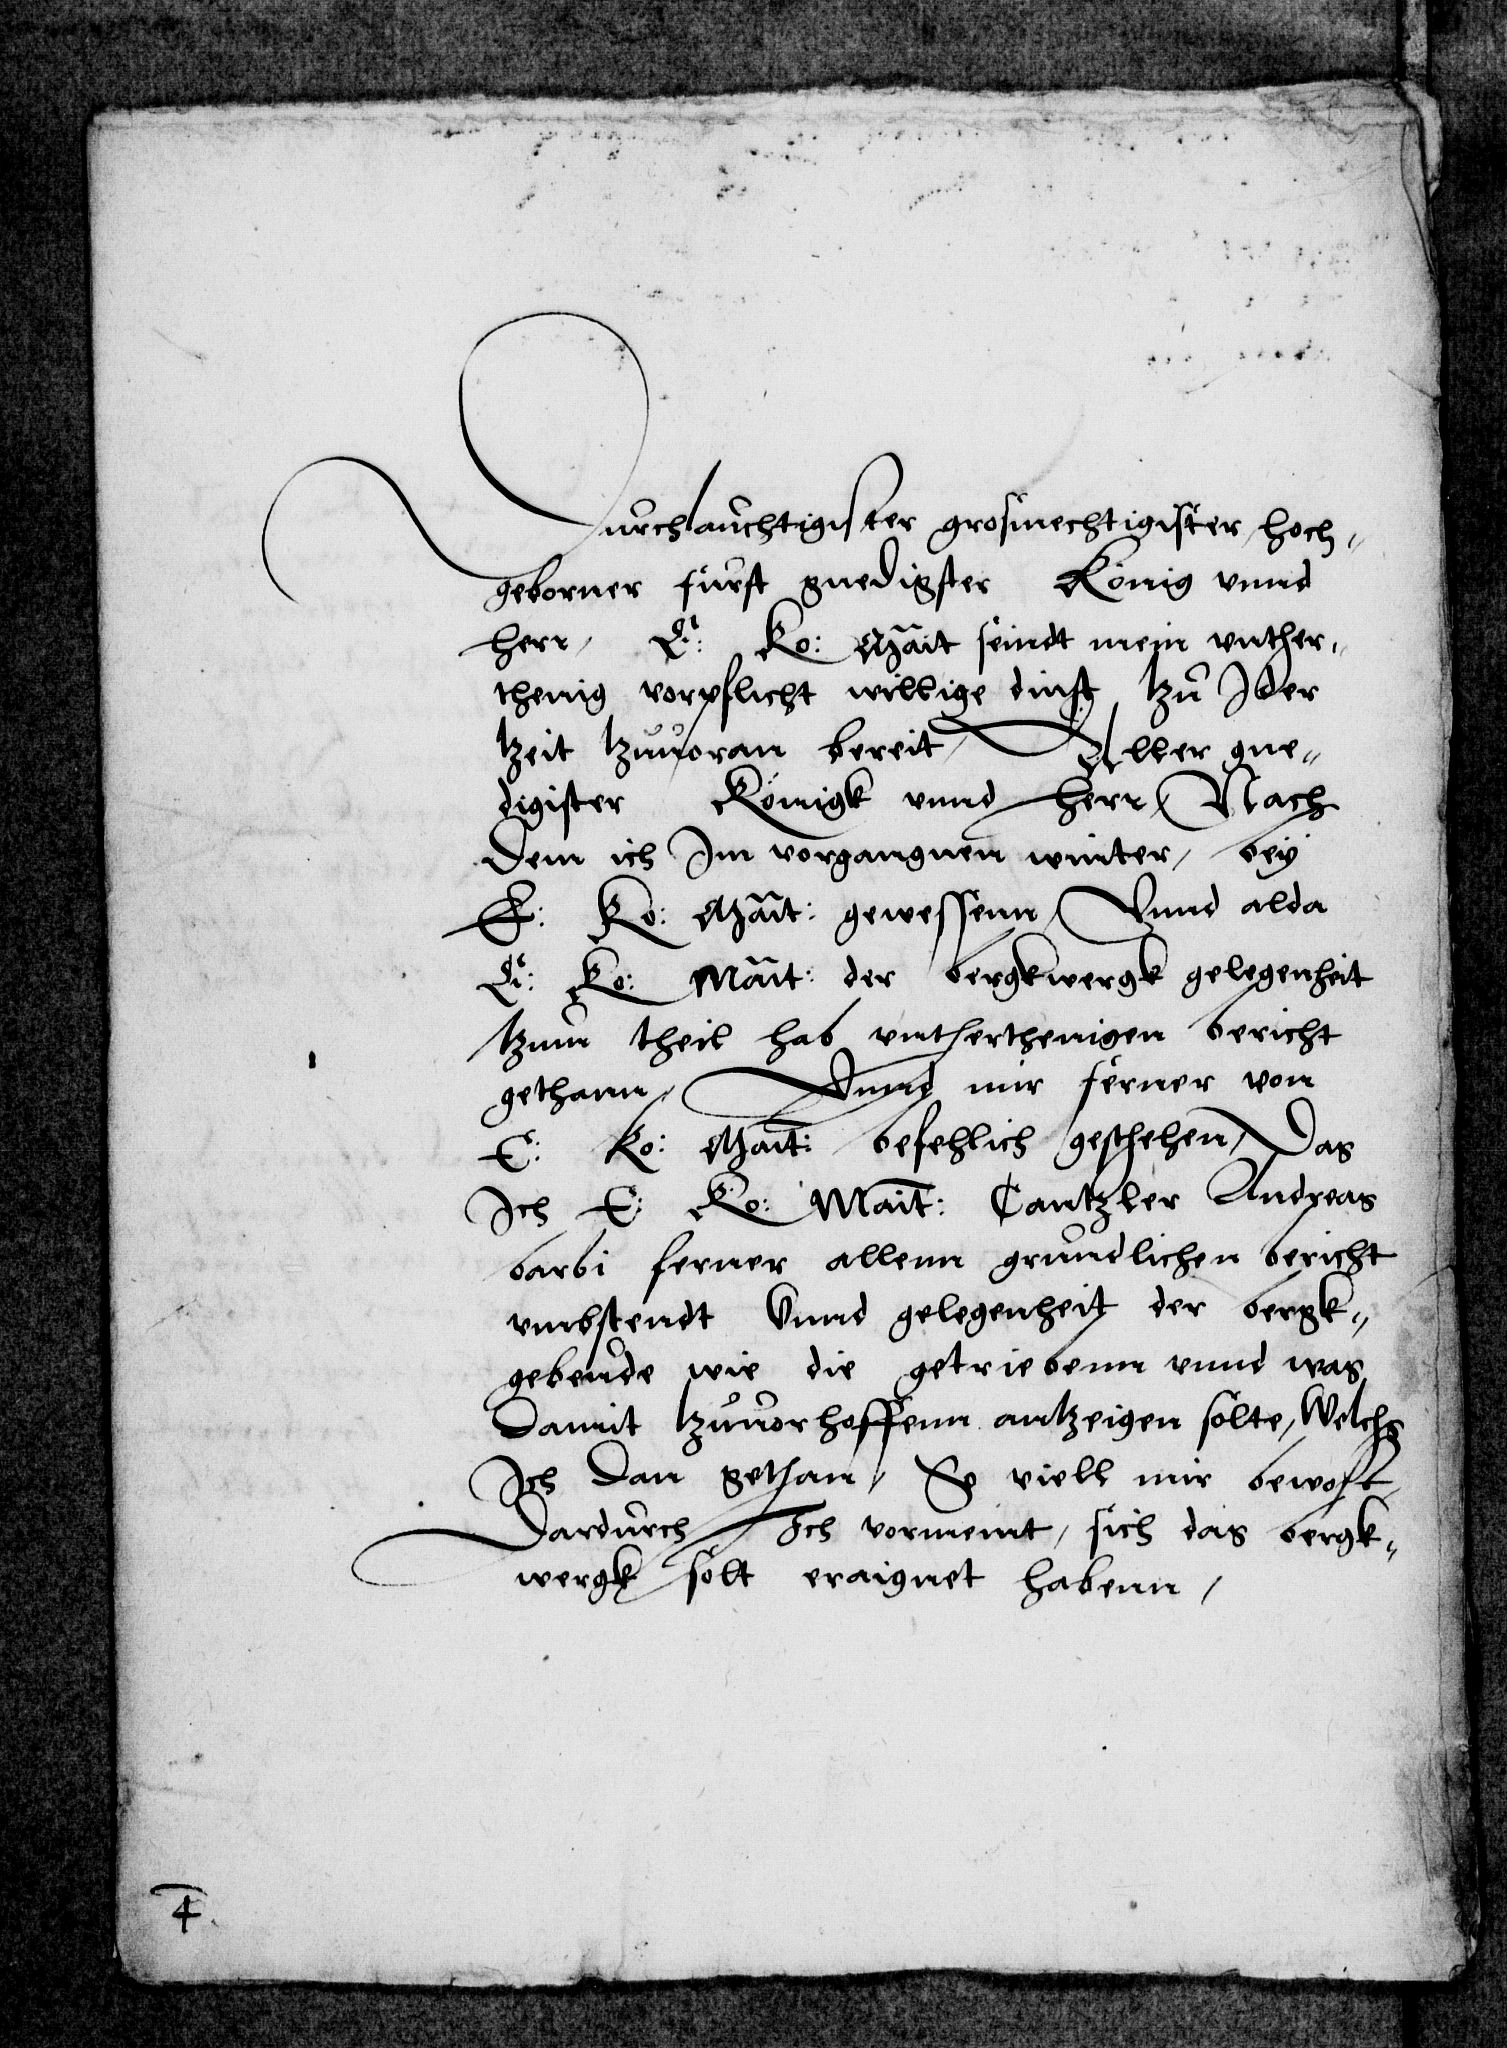 Durchlauchtigister grosmechtigister, hoch-
geborner furst gnedigster König vnnd
herr, E: Ko: Mait seindt mein vnther-
thenig vorpflicht willige dinst, tzu Ider
tzeit tzuuoran bereit, Aller gne-
digister Königk vnnd herr, Nach
dem ich Im vorgangnen winter, bey
E: Ko: Mait: gewessenn, Vnnd alda
E: Ko: Mait: der bergkwergk gelegenheit
tzum theil hab vnthertheniger bericht
gethann, Vnnd mir ferner von
E: Ko: Mait: befehlich geschehen, Das
Ich E: Ko: Mait: Cantzler Andreas
barbi ferner allenn grundlichen bericht
vmbstendt Vnnd gelegenheit der bergk-
gebeude wie die getriebenn vnnd was
damit tzuuorhoffenn antzeigen solte, Welchs
Ich dan gethan, So viell mir bewost,
Dardurch Ich vormeint, sich das bergk-
wergk solt eraignet habenn,
4.